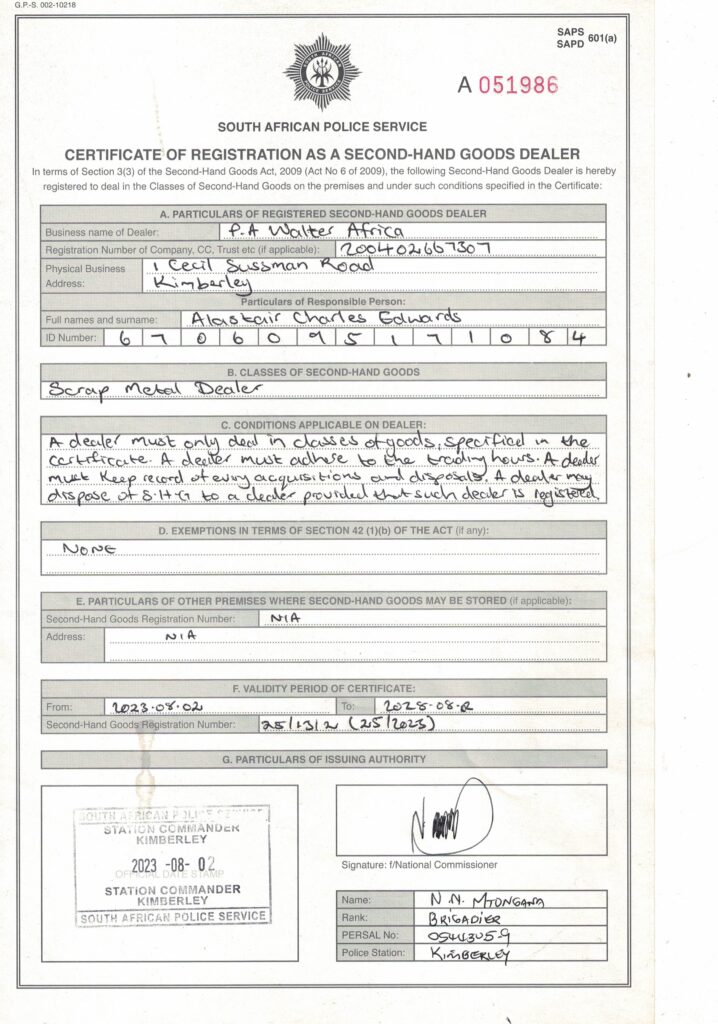 G.P.-S. 002-10218
SAPS
SAPD 601(a)
A 051986
SOUTH AFRICAN POLICE SERVICE
CERTIFICATE OF REGISTRATION AS A SECOND-HAND GOODS DEALER
In terms of Section 3(3) of the Second-Hand Goods Act, 2009 (Act No 6 of 2009), the following Second-Hand Goods Dealer is hereby
registered to deal in the Classes of Second-Hand Goods on the premises and under such conditions specified in the Certificate:
A. PARTICULARS OF REGISTERED SECOND-HAND GOODS DEALER
Business name of Dealer: P.A Walter Africa
Registration Number of Company, CC, Trust etc (if applicable): 200402667307
Physical Business 1 Cecil Sussman Road
Address: Kimberley
Particulars of Responsible Person:
Full names and surname: Alastair Charles Edwards
ID Number: 6 7 0 6 0 9 5 1 7 1 0 8 4
B. CLASSES OF SECOND-HAND GOODS
Scrap Metal Dealer
C. CONDITIONS APPLICABLE ON DEALER:
A dealer must only deal in classes of goods, specified in the
certificate. A dealer must adhere to the trading hours. A dealer
must keep record of every acquisitions and disposals. A dealer may
dispose of S.H.G to a dealer provided that such dealer is registered
D. EXEMPTIONS IN TERMS OF SECTION 42 (1)(b) OF THE ACT (if any):
NONE
E. PARTICULARS OF OTHER PREMISES WHERE SECOND-HAND GOODS MAY BE STORED (if applicable):
Second-Hand Goods Registration Number: N/A
Address: N/A
F. VALIDITY PERIOD OF CERTIFICATE:
From: 2023-08-02 To:
Second-Hand Goods Registration Number: 25/13/2 (25/2023)
G. PARTICULARS OF ISSUING AUTHORITY
SOUTH AFRICAN POLICE SERVICE
STATION COMMANDER
KIMBERLEY
2023 -08- 02
OFFICIAL DATE STAMP
STATION COMMANDER
KIMBERLEY
SOUTH AFRICAN POLICE SERVICE
Signature: f/National Commissioner
Name: N.N. MTONGANA
Rank: BRIGADIER
PERSAL No:
Police Station: KIMBERLEY